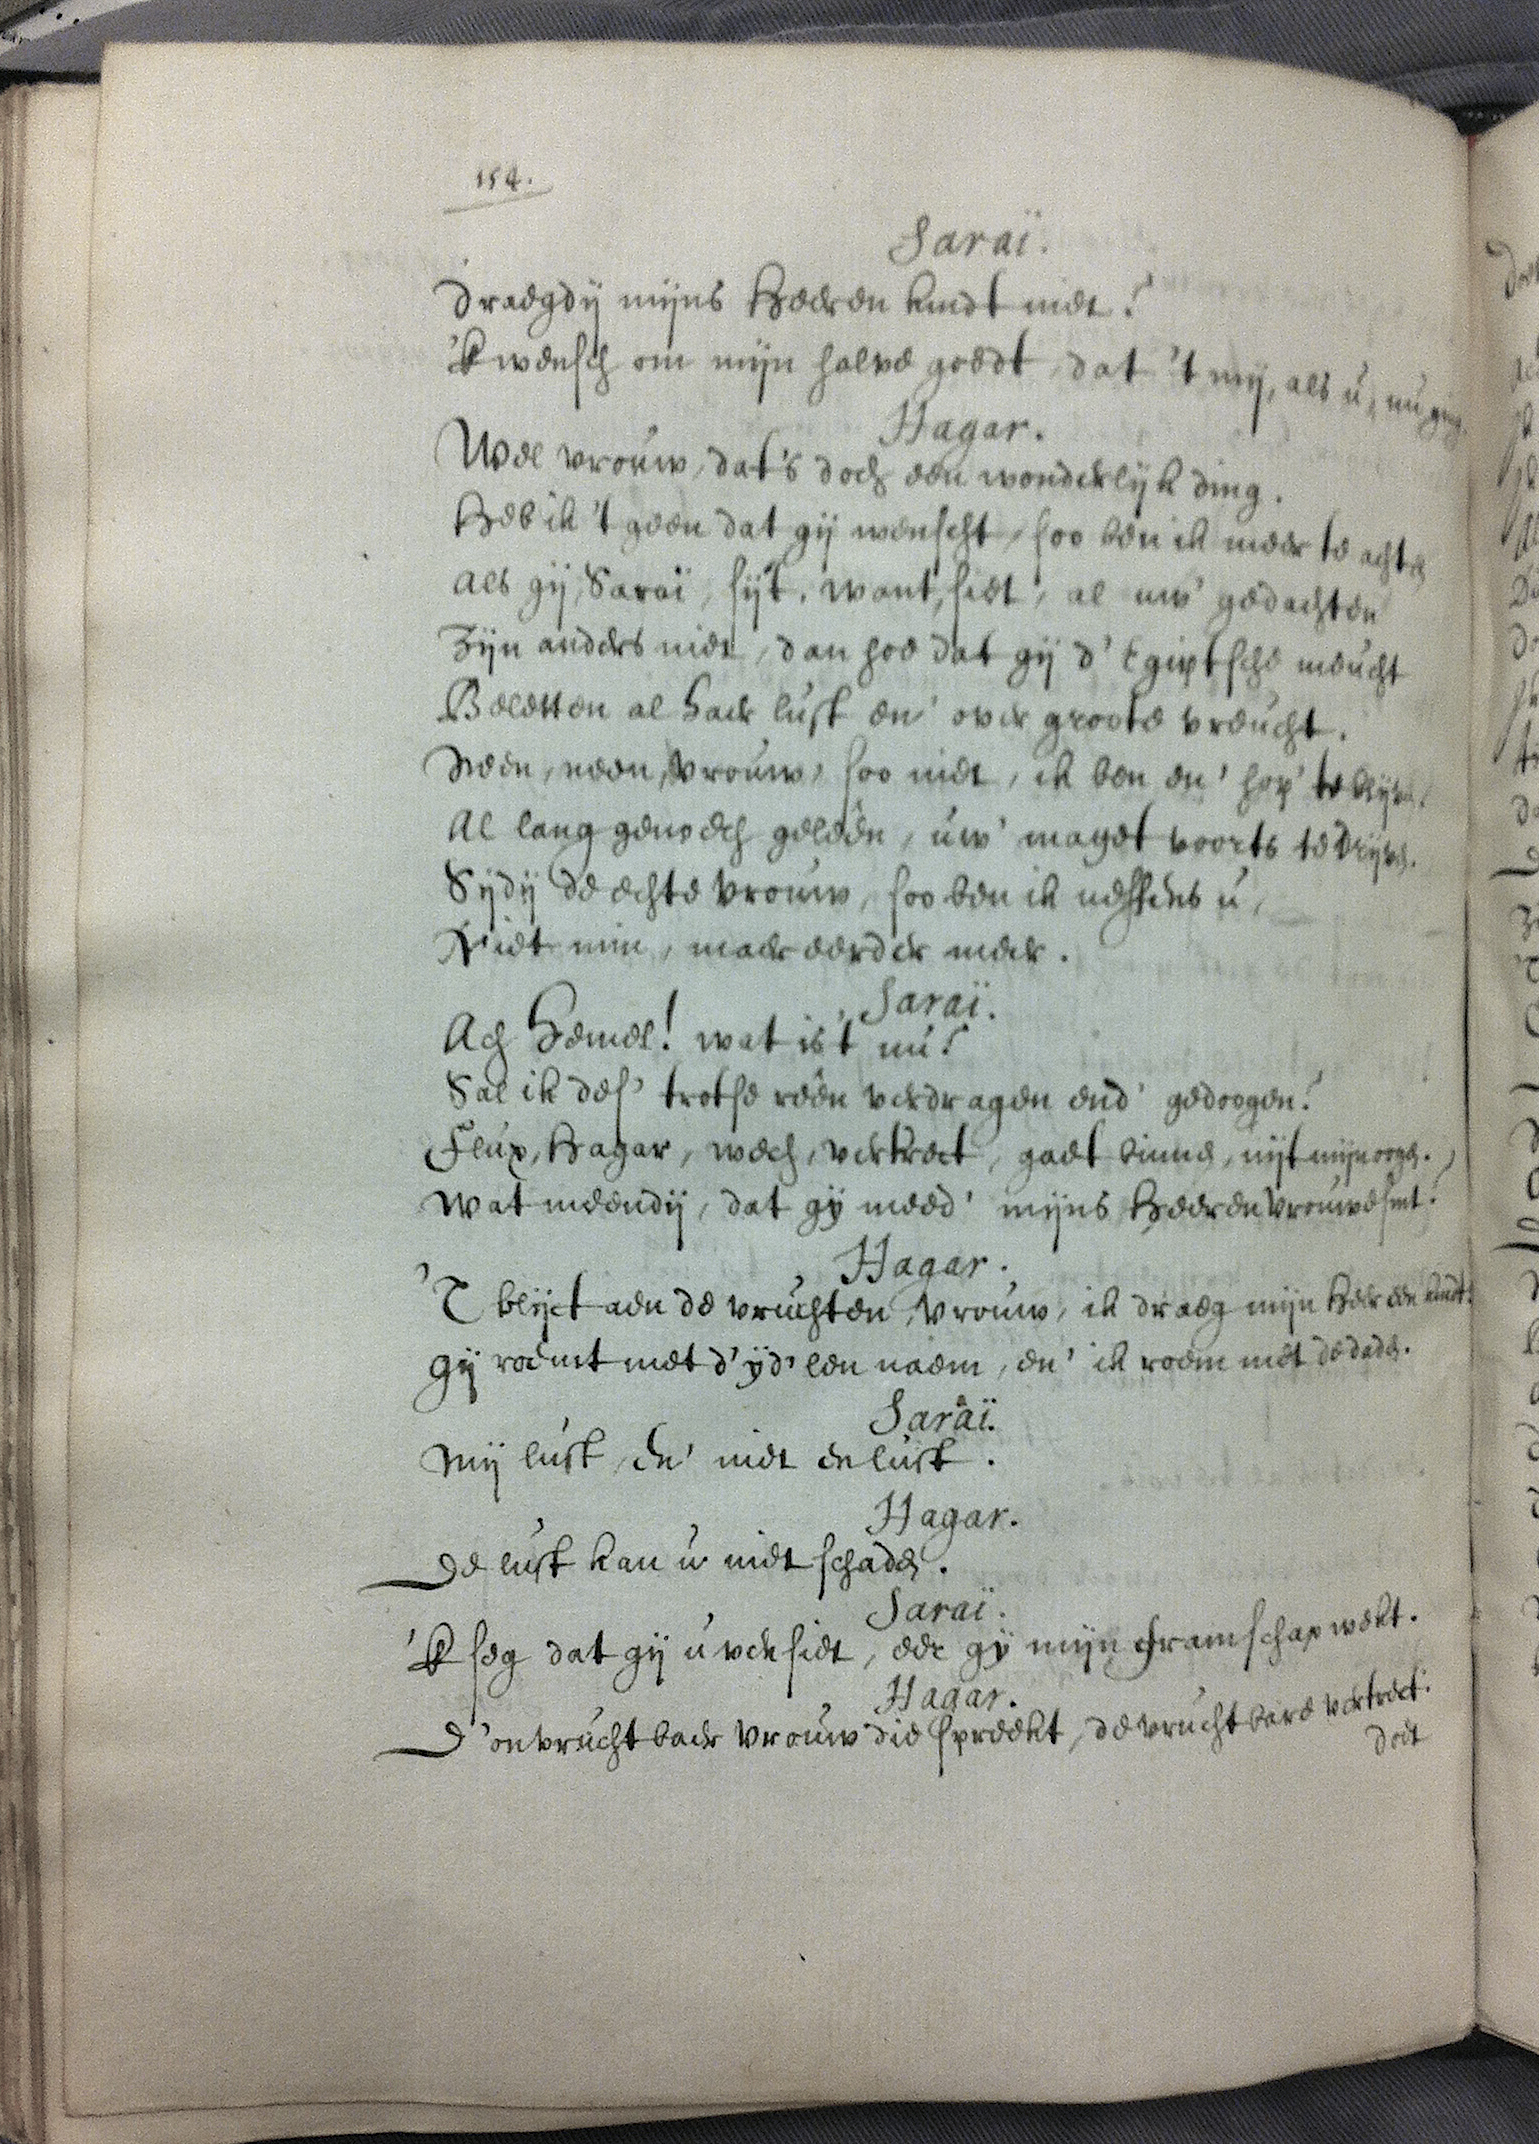 154.
Saraï.
Draegdij mijns Heeren kindt niet?
'k wensch om mijn halve goedt, dat 't mij, als ú, nú ging.
Hagar.
Wel vroúw, dat's doch een wonderlijk ding.
Heb ik 't geen dat gij wenscht, soo ben ik meer te achten
als gij, Saraï, sijt. want, siet, al uw' gedachten
Zijn anders niet, dan hoe dat gij d' Egiptsche meúcht
Beletten al haer lúst en' over groote vreúcht.
Neen, neen, vroúw, soo niet, ik ben en' hop' te blijven.
Al lang genoech geleên, úw' maget voorts te drijven.
Sijdij de echte vroúw, soo ben ik neffens ú,
Niet min, maer eerder meer.
Saraï.
Ach Hemel! wat is't nú?
Sal ik des' trotse reên verdragen end' gedoogen?
Flúx, Hagar, wech, vertrect, gaet binnen, uijt mijn oogen.
Wat meendij, dat gij meed' mijns Heeren vroúwe sint?
Hagar.
'T blijct aen de vrúchten, vroúw, ik draeg mijn Heer een kindt.
Gij roemt met d' ijd'len naem, en' ik roem met de daden.
Saraï.
Mij lúst, en' niet en lúst.
Hagar.
De lúst kan ú niet schaden.
Saraï.
'k seg dat gij ú versiet, eer gij mijn gramschap wekt.
Hagar.
D'onvrúchtbaer vroúw die spreekt, de vrúchtbare vertrect.
doet